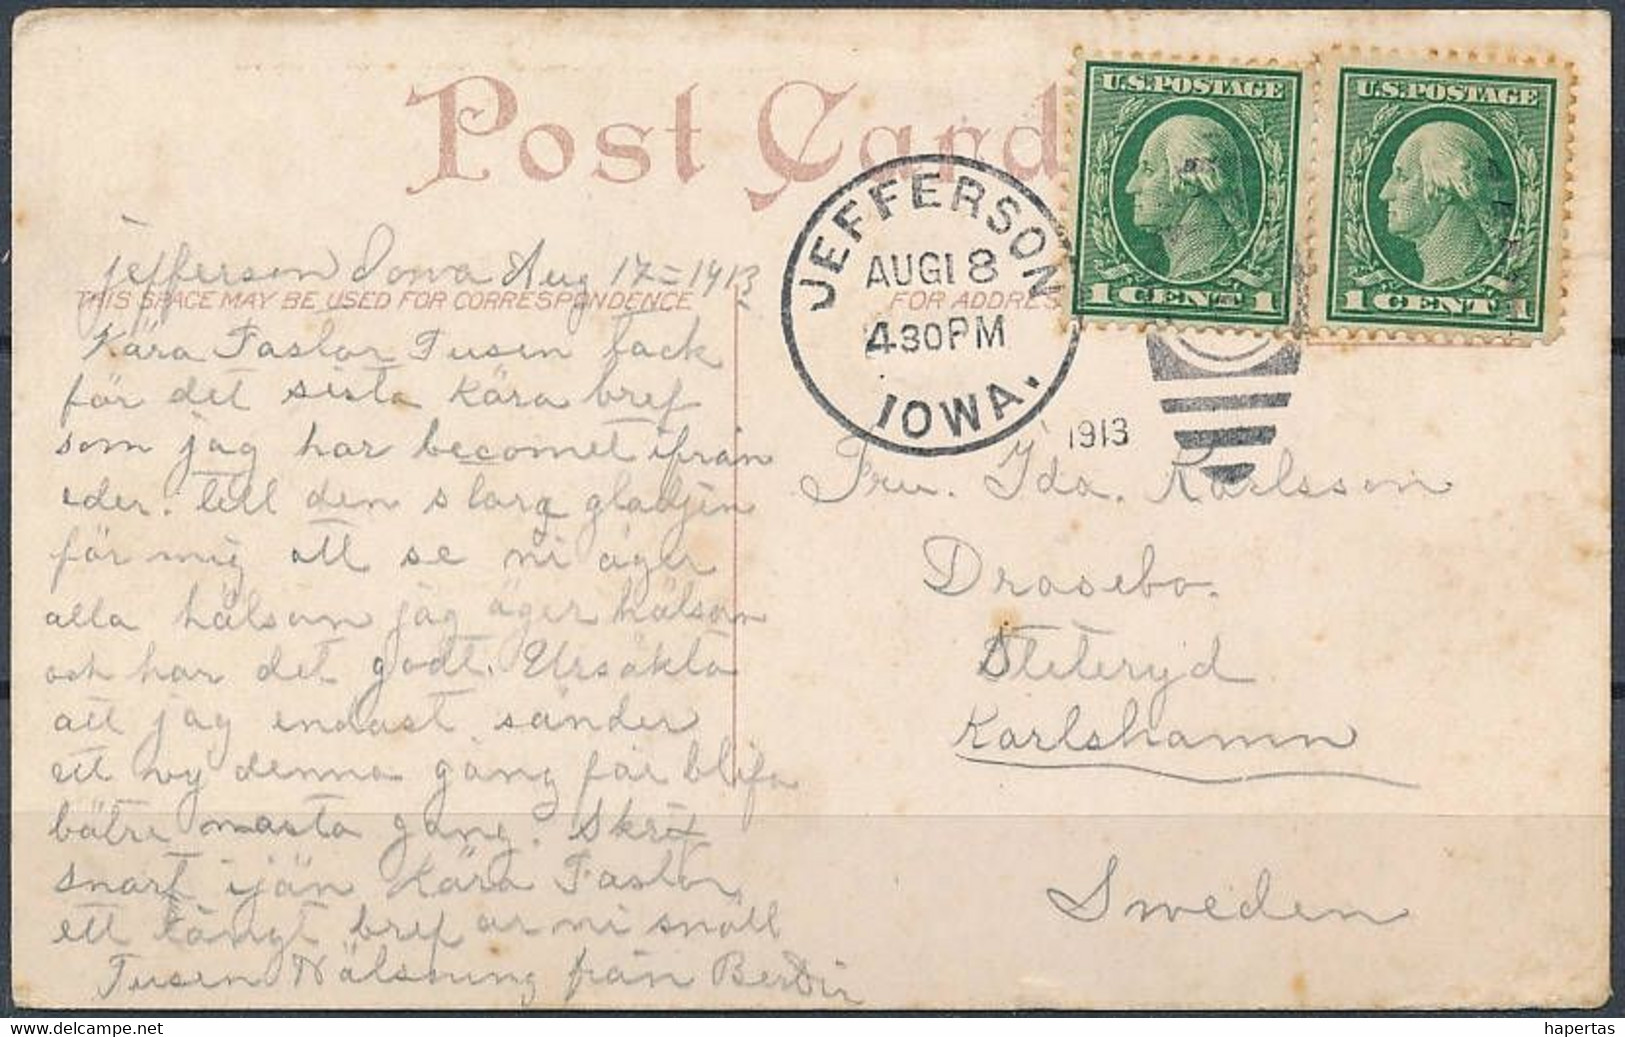 Post Card
U.S.POSTAGE
1 CENT 1
U.S.POSTAGE
1 CENT 1
JEFFERSON
AUG 18
430PM
IOWA.
1913
Jefferson Iowa Aug 17 = 1913
THIS SPACE MAY BE USED FOR CORRESPONDENCE
FOR ADDRES
Kära Fastor Tusen tack
för det sista Kära bref
som jag har becomet ifrån
eder. till den storg gladjen
för mig att se ni äger
alla hälsan jag äger hälsan
och har det godt. Ursäkta
att jag endast sänder
ett vy denna gång får blifa
bätre nasta gang. Skrif
snart ijän Kära Fastor
ett långt bref ar ni snäll
Tusen Hälsning från
Fru. Ida. Karlsson
Drosebo.
Steteryd
Karlshamn
Sweden
hapertas
www.delcampe.net